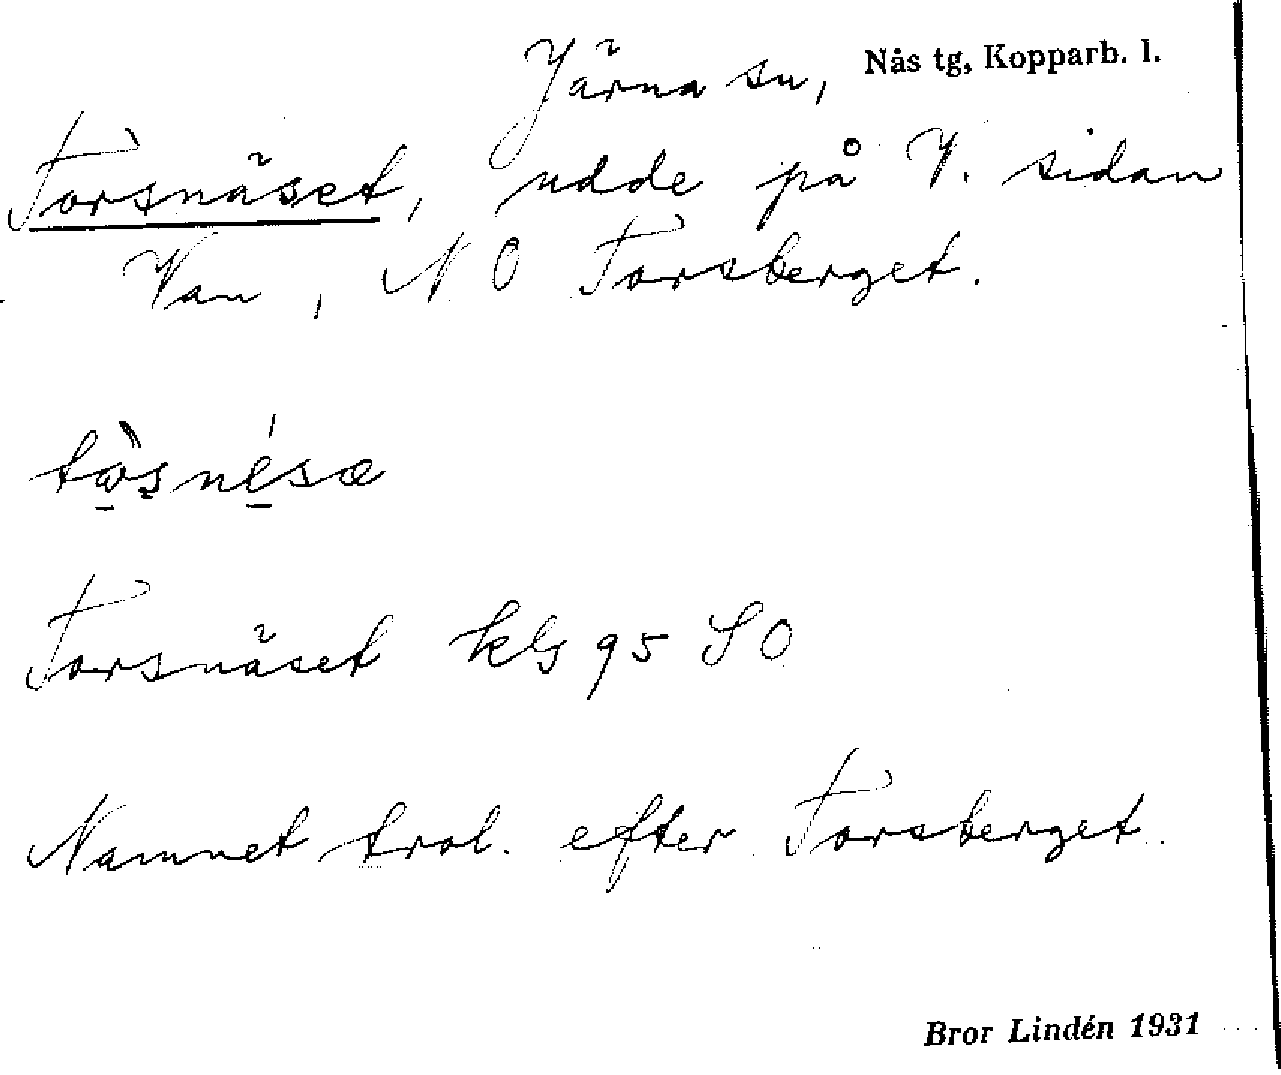 Järna sn, Nås tg, Kopparb. l.
Torsnäset, udde på V. sidan
Van, NO Torsberget.
Torsnäset kbs 95 SO
Namnet trol. efter Torsberget.
Bror Lindén 1931